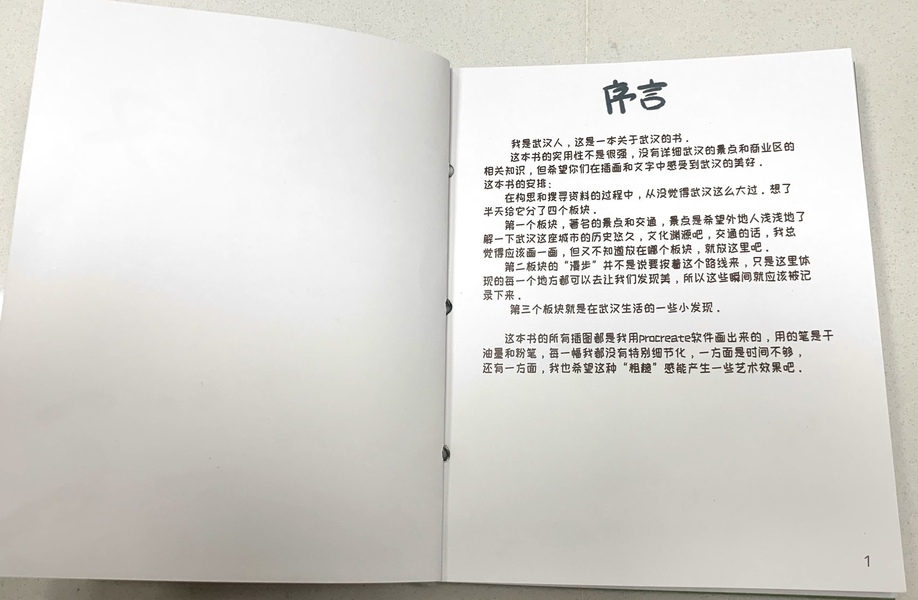 序言
我是武汉人，这是一本关于武汉的书．
这本书的实用性不是很强，没有详细武汉的景点和商业区的
相关知识，但希望你们在插画和文字中感受到武汉的美好．
这本书的安排：
在构思和搜寻资料的过程中，从没觉得武汉这么大过．想了
半天给它分了四个板块．
第一个板块，著名的景点和交通，景点是希望外地人浅浅地了
解一下武汉这座城市的历史悠久，文化渊源吧，交通的话，我总
觉得应该画一画，但又不知道放在哪个板块，就放这里吧．
第二板块的“漫步”并不是说要按着这个路线来，只是这里体
现的每一个地方都可以去让我们发现美，所以这些瞬间就应该被记
录下来．
第三个板块就是在武汉生活的一些小发现．
这本书的所有插图都是我用procreate软件画出来的，用的笔是干
油墨和粉笔，每一幅我都没有特别细节化，一方面是时间不够，
还有一方面，我也希望这种“粗糙”感能产生一些艺术效果吧．
1